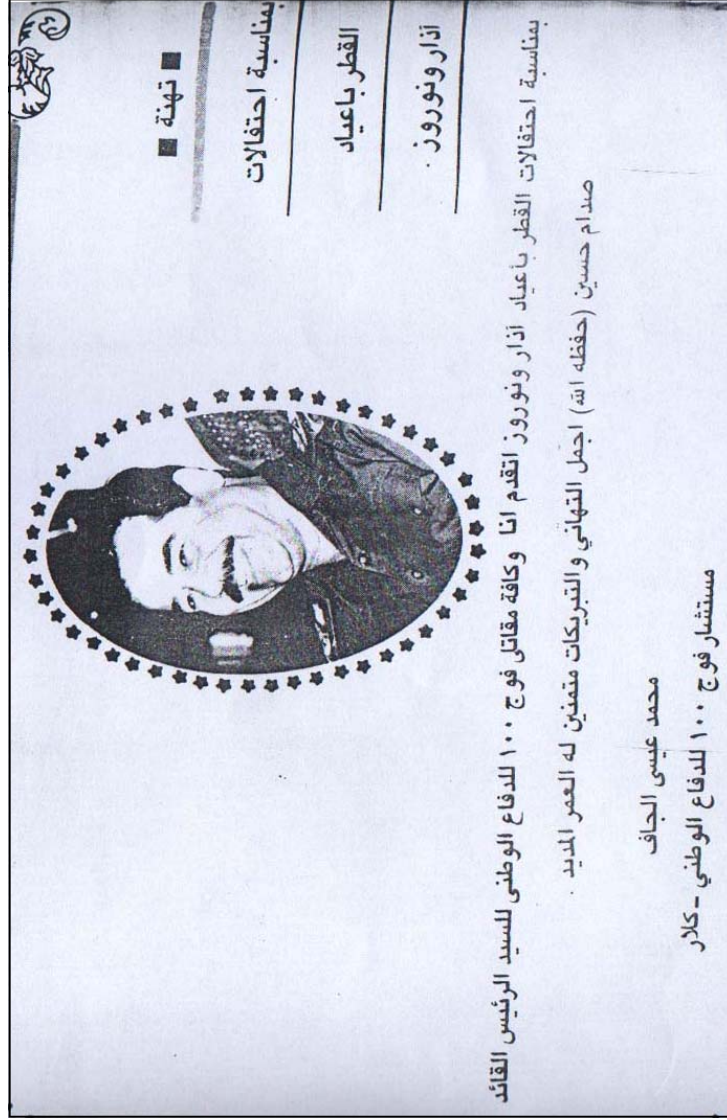 ■ تهنة ■
بمناسبة احتفالات
القطر باعياد
آذار ونوروز .
بمناسبة احتفالات القطر باعياد آذار ونوروز اتقدم انا وكافة مقاتلي فوج ١٠٠ للدفاع الوطني للسيد الرئيس القائد
صدام حسين (حفظه الله) اجمل التهاني والتبريكات متمنين له العمر المديد .
محمد عيسى الجاف
مستشار فوج ١٠٠ للدفاع الوطني - كلار